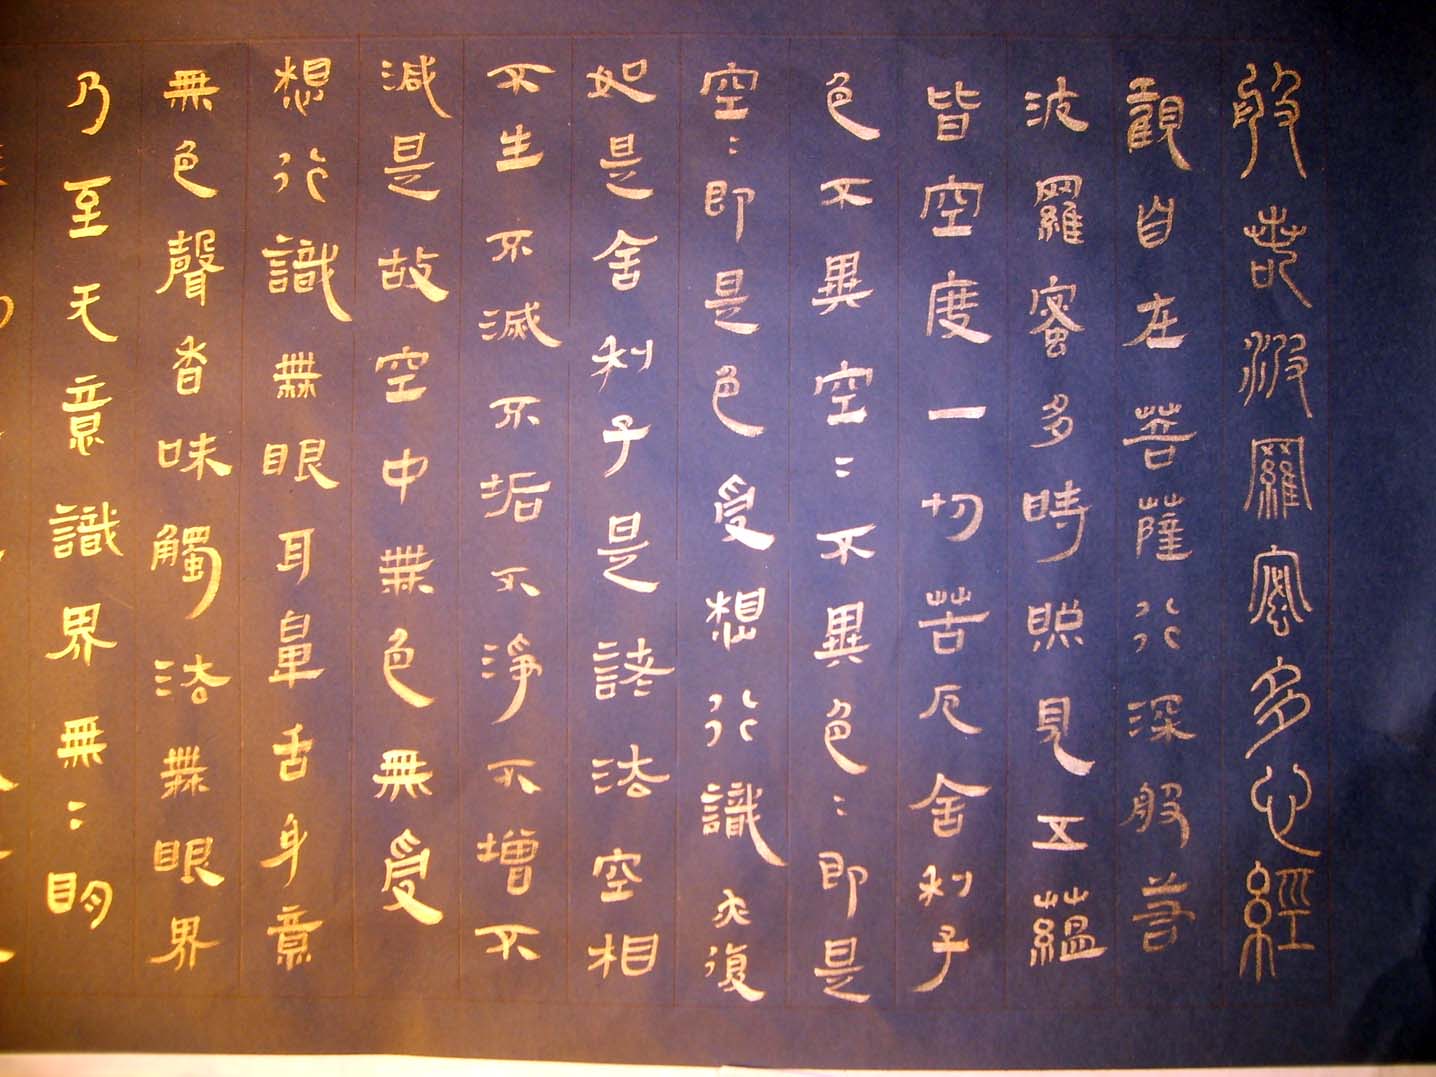 般若波羅密多心經
觀自在菩薩行深般若
波羅蜜多時照見五蘊
皆空度一切苦厄舍利子
色不異空〻不異色〻即是
空〻即是色受想行識亦復
如是舍利子是諸法空相
不生不滅不垢不淨不增不
減是故空中無色無受
想行識無眼耳鼻舌身意
無色聲香味觸法無眼界
乃至无意識界無〻明